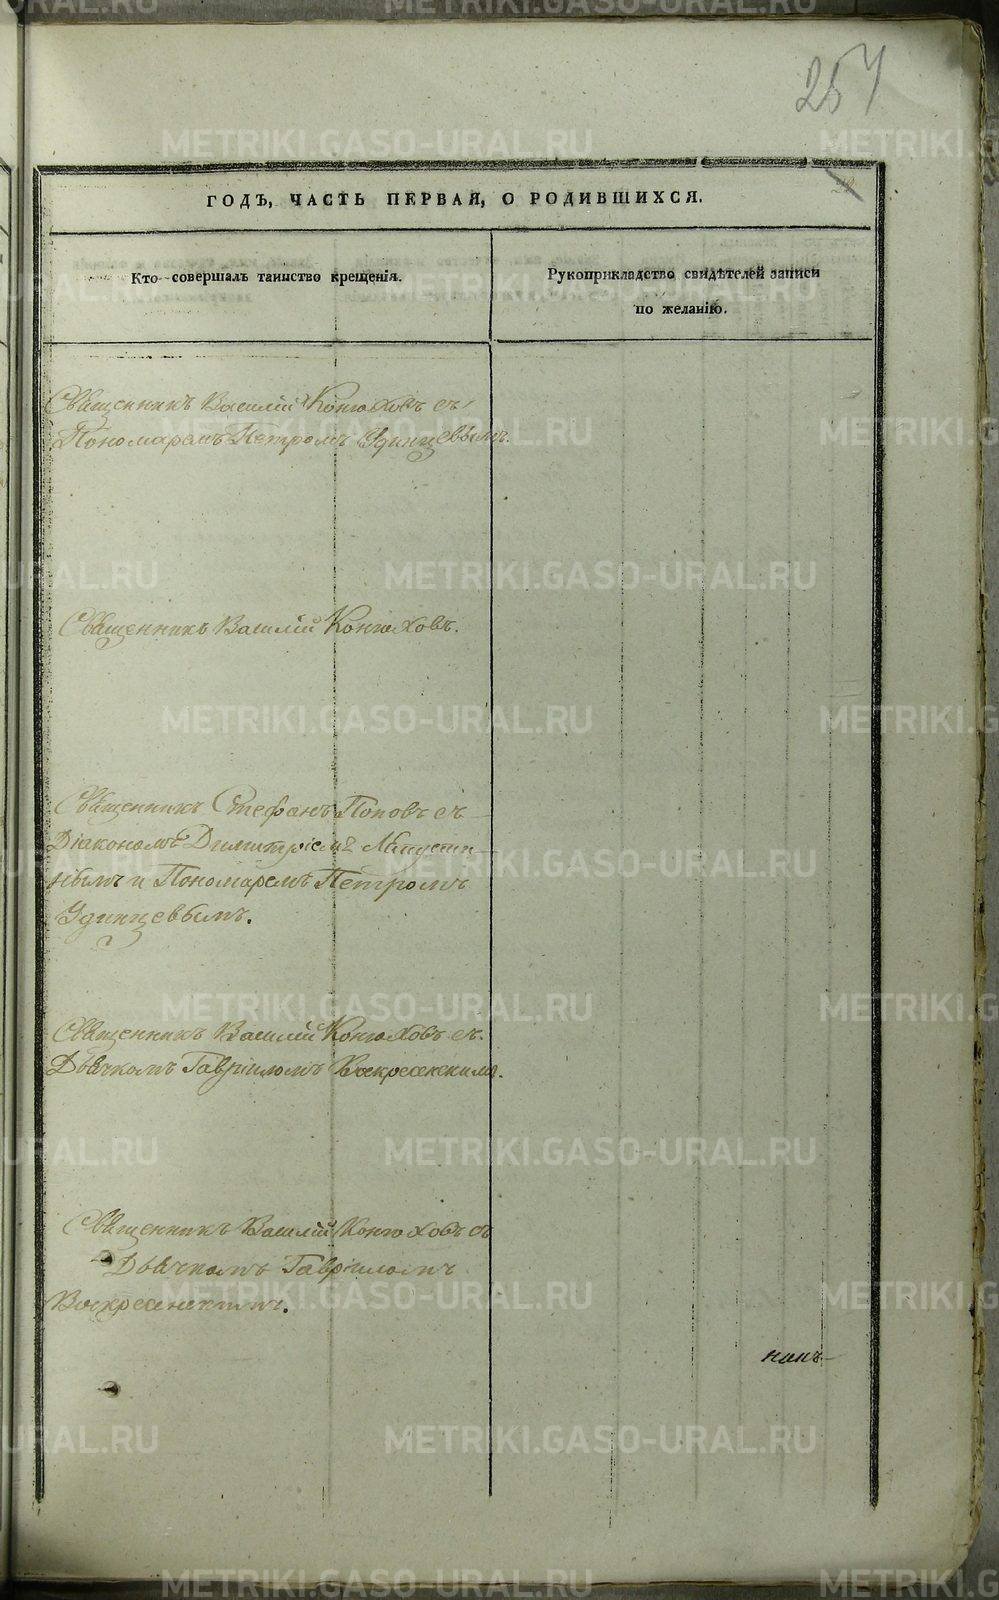 257
ГОДЪ, ЧАСТЬ ПЕРВАЯ, О РОДИВШИХСЯ.
Кто совершалъ таинство крещенія.
Рукоприкладство свидѣтелей записи
по желанію.
Священникъ Василій Конюховъ съ
Пономаремъ Петромъ Удинцевымъ.
Священникъ Василій Конюховъ.
Священникъ Стефанъ Поповъ съ
Діакономъ Димитріемъ Лапустин-
нымъ и Пономаремъ Петромъ
Удинцевымъ.
Священникъ Василій Конюховъ съ
Дьячкомъ Гавріиломъ Воскресенскимъ.
Священникъ Василій Конюховъ съ
Дьячкомъ Гавріиломъ
Воскресенскимъ.
METRIKI.GASO-URAL.RU